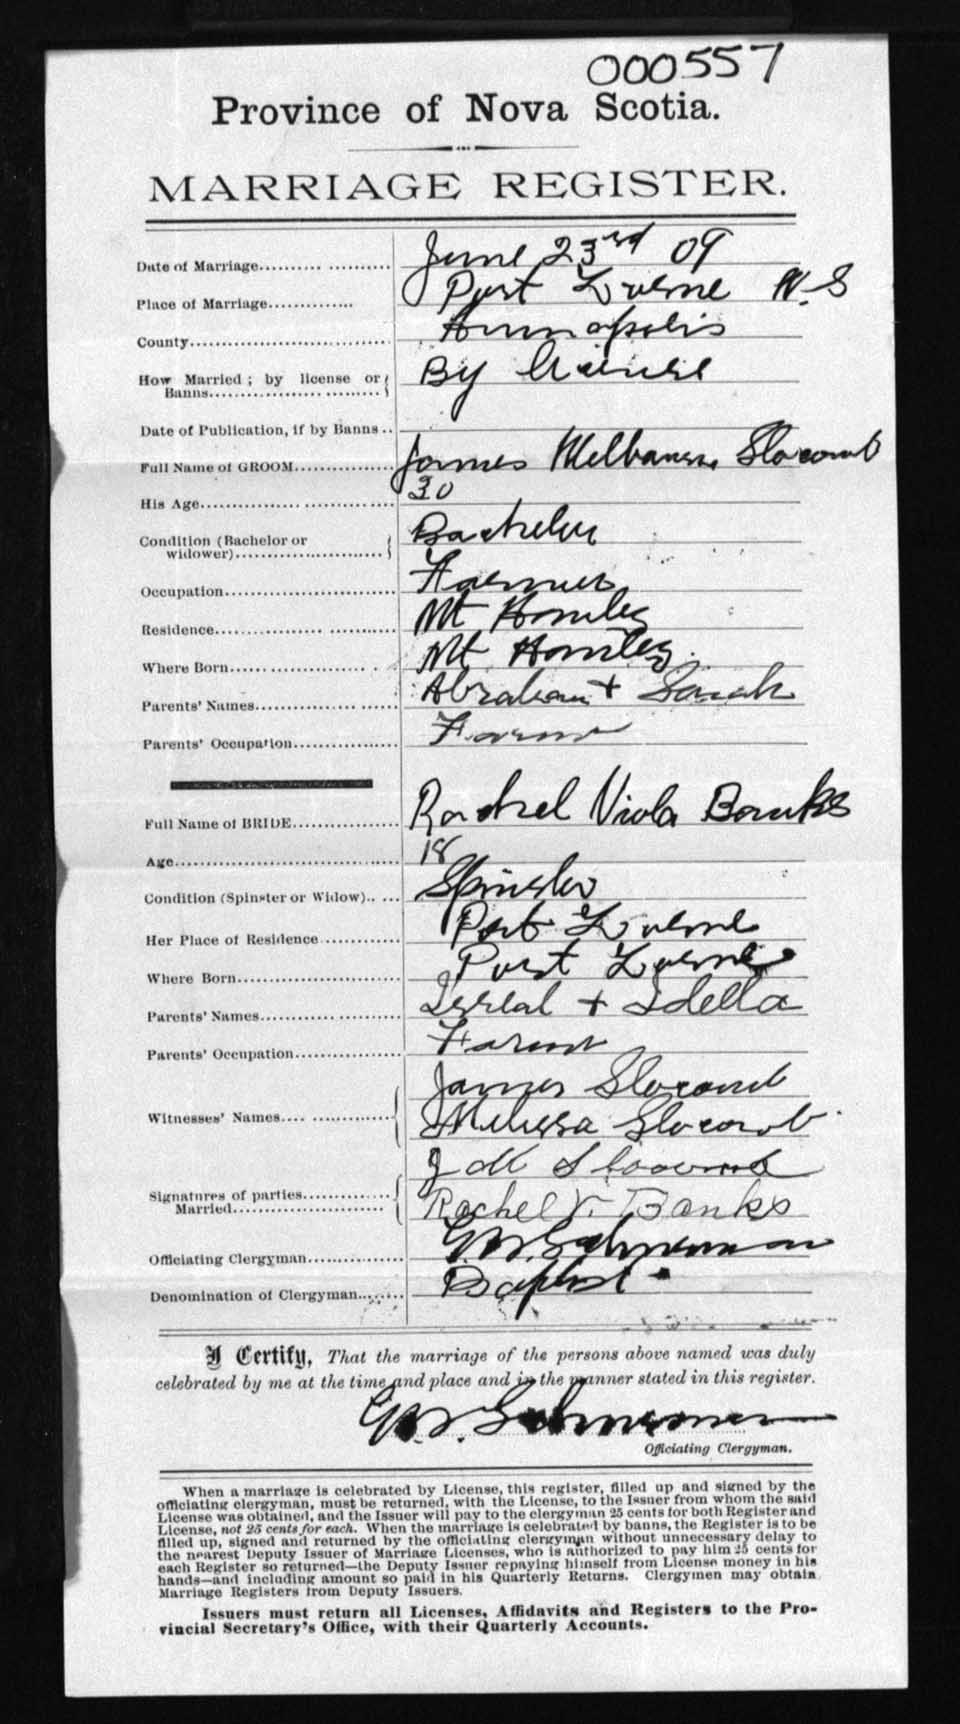 000557
Province of Nova Scotia.
MARRIAGE REGISTER.
Date of Marriage.......... ........... June 23rd 09
Place of Marriage.............. Port Lorne N.S
County................................ Annapolis
How Married ; by license or By License
Banns.......................... 
Date of Publication, if by Banns ..
Full Name of GROOM................ James Melbourne Slocomb
His Age................................ 30
Condition (Bachelor or Bachelor
widower)........................
Occupation........................... Farmer
Residence............................. Mt Hanley
Where Born.......................... Mt Hanley.
Parents' Names....................... Abraham + Sarah
Parents' Occupation................. Farmer
Full Name of BRIDE................ Rachel Viola Banks
Age................................... 18
Condition (Spinster or Widow).. ... Spinster
Her Place of Residence............ Port Lorne
Where Born.......................... Port Lorne
Parents' Names....................... Isreal + Idella
Parents' Occupation................ Farmer
James Slocomb
Witnesses' Names.... ............... Melissa Slocomb
J M Slocomb
Signatures of parties............. Rachel V. Banks
Married.........................
Officiating Clergyman..............
Denomination of Clergyman........ Baptist
I Certify, That the marriage of the persons above named was duly
celebrated by me at the time and place and in the manner stated in this register.
Officiating Clergyman.
When a marriage is celebrated by License, this register, filled up and signed by the
officiating clergyman, must be returned, with the License, to the Issuer from whom the said
License was obtained, and the Issuer will pay to the clergyman 25 cents for both Register and
License, not 25 cents for each. When the marriage is celebrated by banns, the Register is to be
filled up, signed and returned by the officiating clergyman without unnecessary delay to
the nearest Deputy Issuer of Marriage Licenses, who is authorized to pay him 25 cents for
each Register so returned—the Deputy Issuer repaying himself from License money in his
hands—and including amount so paid in his Quarterly Returns. Clergymen may obtain
Marriage Registers from Deputy Issuers.
Issuers must return all Licenses, Affidavits and Registers to the Pro-
vincial Secretary's Office, with their Quarterly Accounts.